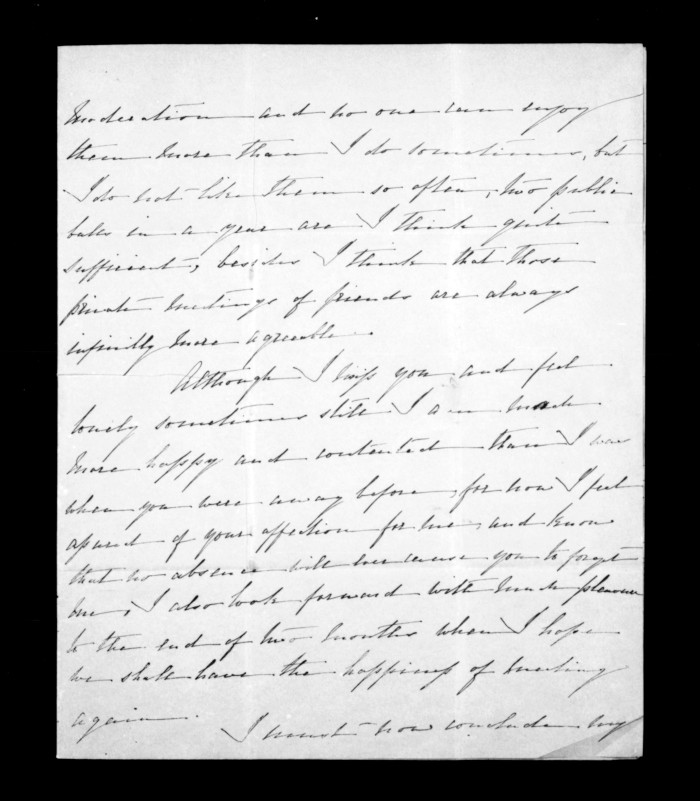 moderation and no one can enjoy
them more than I do sometimes, but
I do not like them so often, two public
balls in a year are I think quite
sufficient, besides I think that those
private meetings of friends are always
infinitly more agreeable.
Although I miss you and feel
lonely sometimes still I am much
more happy and contented than I was
when you were away before, for now I feel
asured of your affection for me and know
that no absence will ever cause you to forget
me, I also look forward with much pleasure
to the end of two months when I hope
we shall have the happiness of meeting
again.
I must now conclude my